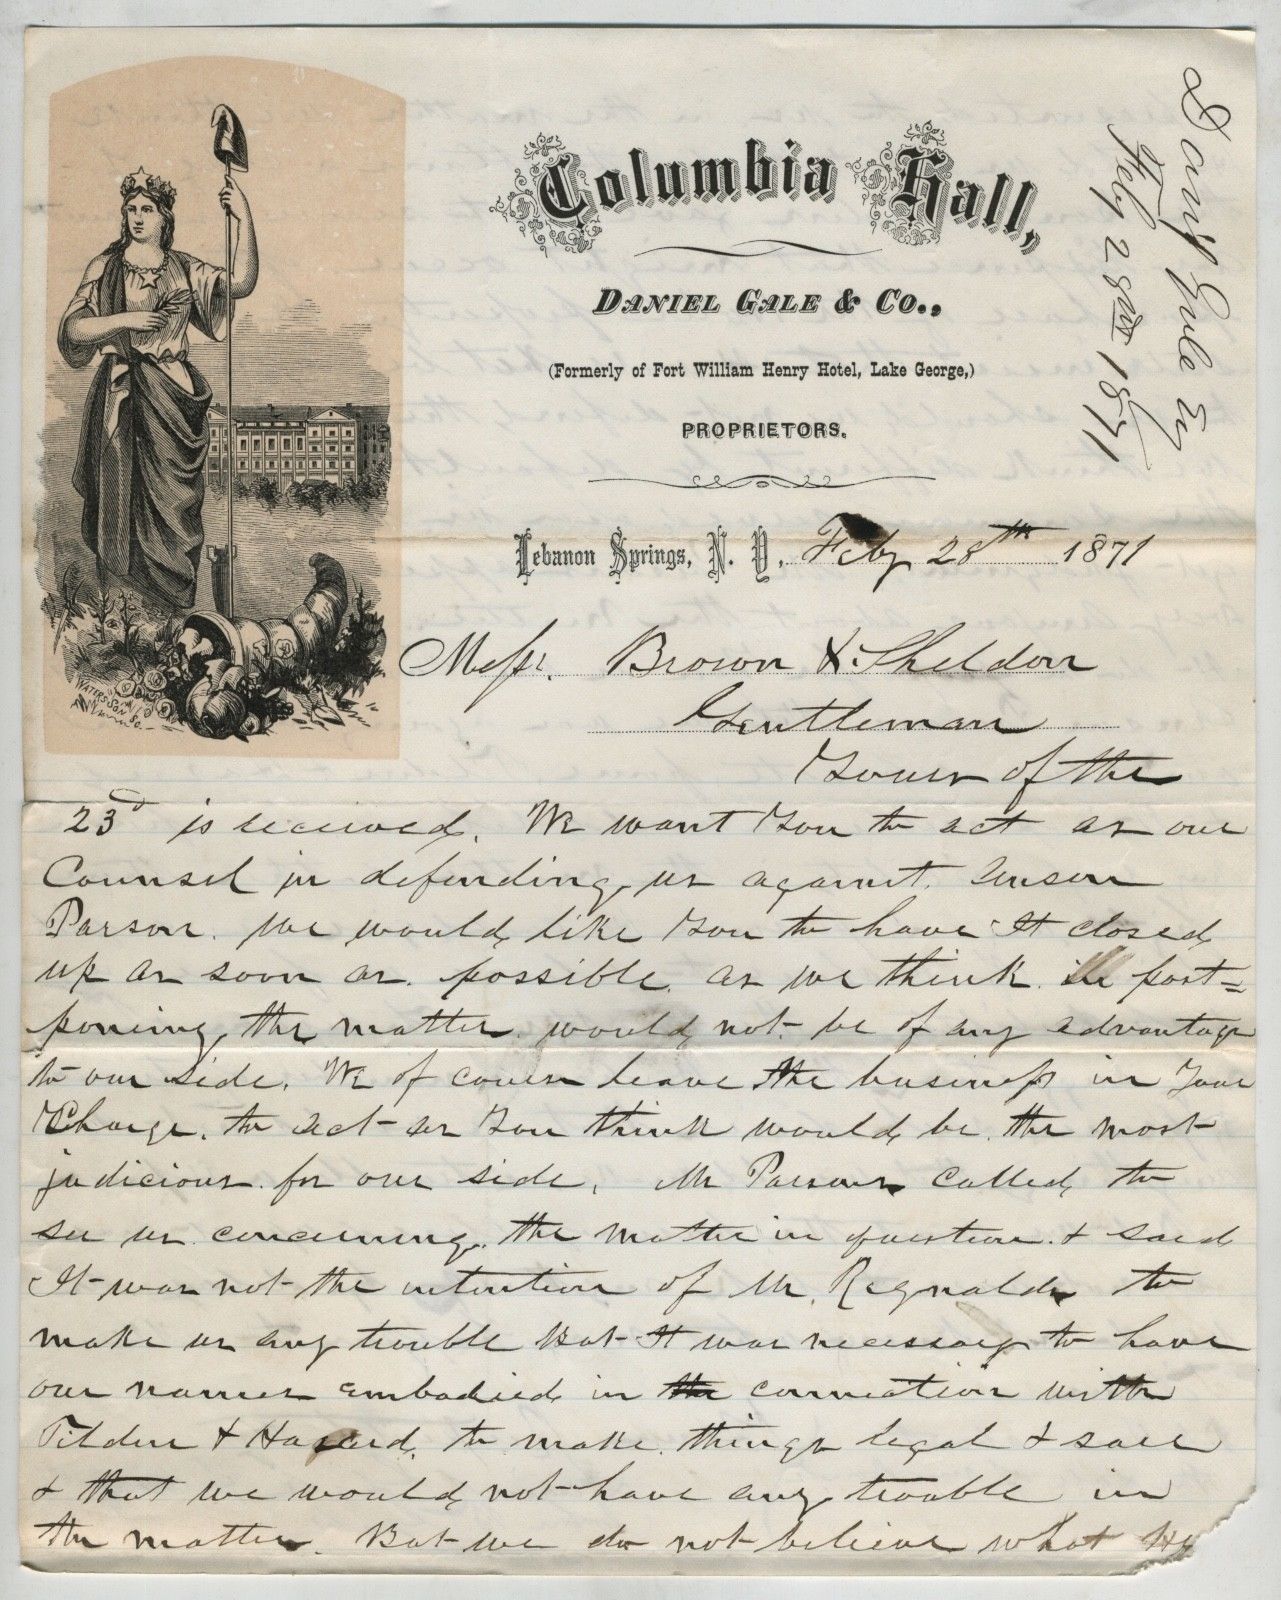 Columbia Hall,
DANIEL GALE & CO.,
(Formerly of Fort William Henry Hotel, Lake George,)
PROPRIETORS.
Danl Gale
Feby 28th 1871
Lebanon Springs, N. Y. Feby 28th 1871
Messr. Brown & Sheldon
Gentleman
Yours of the
23d is received. We want you to act as our
Counsel in defending us against
Parson. We would like you to have it closed
up as soon as possible as we think post=
poning the matter would not be of any advantage
to our side. We of course leave the business in your
Charge. to act as you think would be the most
judicious for our side. Mr Parsons called to
see us concerning the matter in question. & said
It was not the intention of Mr. Reynolds to
make us any trouble But it was necessary to have
our names embodied in connection with
Tilden & Hazard, to make things legal & safe
& that we would not have any trouble in
the matter. But we do not believe what He
WATERS & SON SC.